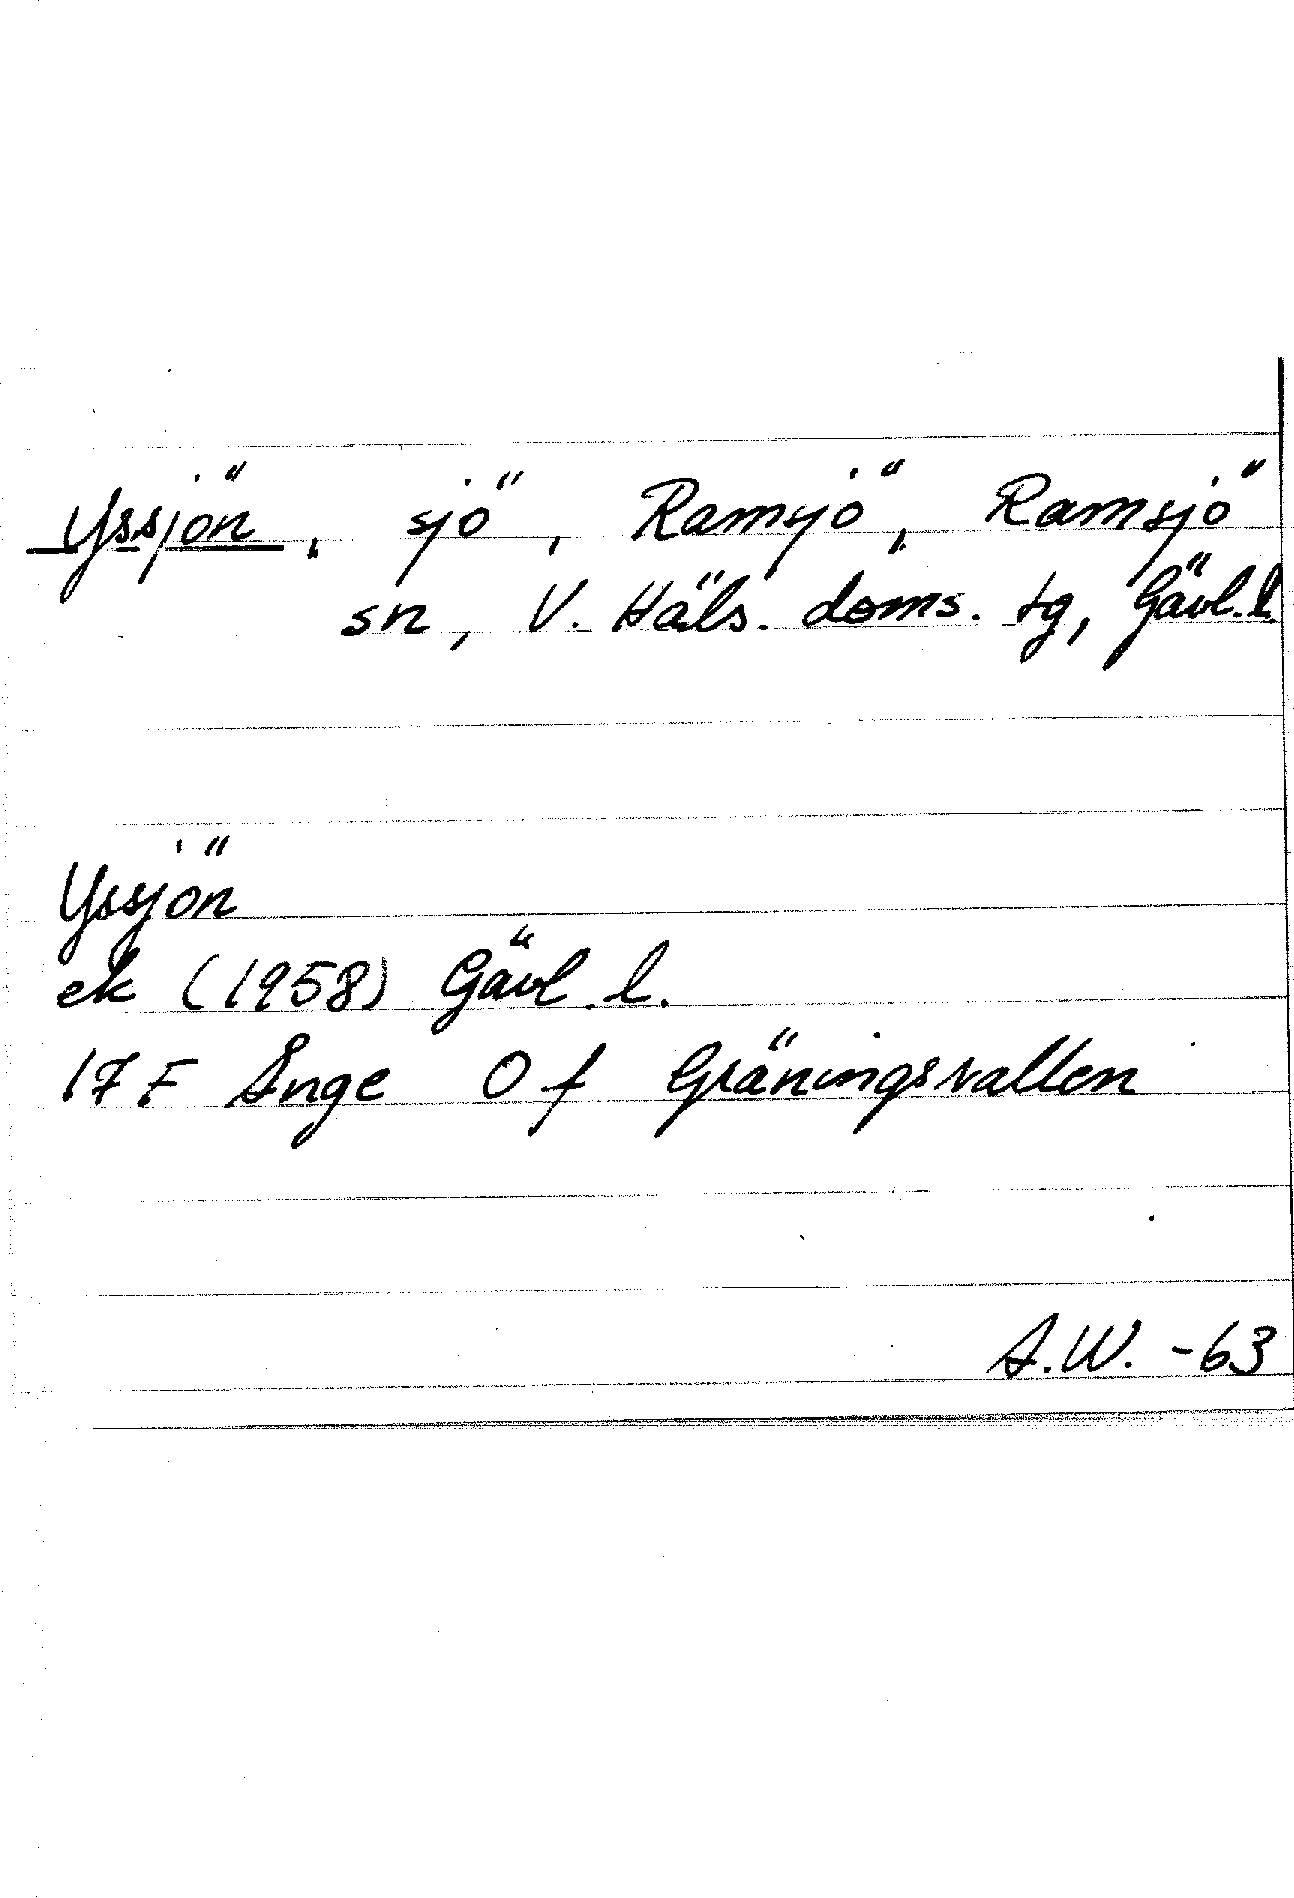 Yssjön, sjö, Ramsjö, Ramsjö
sn, V. Häls. doms. tg, Gävl. l.
Yssjön
ek (1958) Gävl. l.
17 F Ånge O f Gräningsvallen
A.W. -63